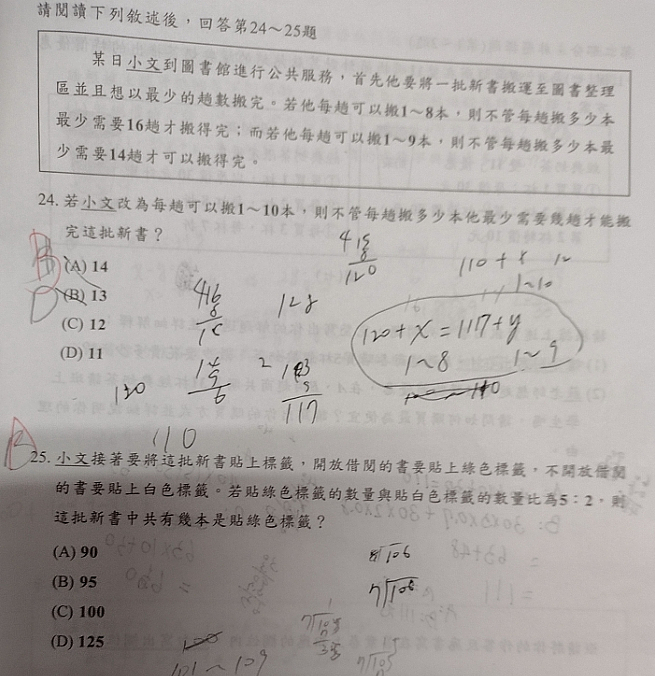 請閱讀下列敘述後，回答第24～25題
某日小文到圖書館進行公共服務，首先他要將一批新書搬運至圖書整理
區並且想以最少的趟數搬完。若他每趟可以搬1～8本，則不管每趟搬多少本
最少需要16趟才搬得完；而若他每趟可以搬1～9本，則不管每趟搬多少本最
少需要14趟才可以搬得完。
24. 若小文改為每趟可以搬1～10本，則不管每趟搬多少本他最少需要幾趟才能搬
完這批新書？
(A) 14
(B) 13
(C) 12
(D) 11
B
D
120
110 + 8
1~10
128
120 + x = 117 + y
1~8 1~9
120
117
110
25. 小文接著要將這批新書貼上標籤，開放借閱的書要貼上綠色標籤，不開放借閱
的書要貼上白色標籤。若貼綠色標籤的數量與貼白色標籤的數量比為5：2，則
這批新書中共有幾本是貼綠色標籤？
B
(A) 90
(B) 95
(C) 100
(D) 125
101 ~ 109